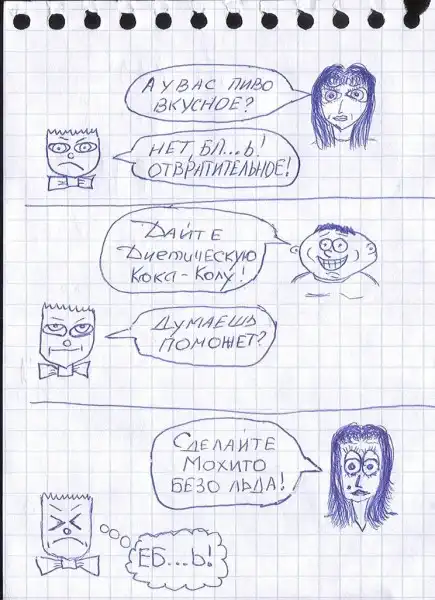 А У ВАС ПИВО
ВКУСНОЕ?
НЕТ, БЛ...Ь!
ОТВРАТИТЕЛЬНОЕ!
ДАЙТЕ
ДИЕТИЧЕСКУЮ
КОКА-КОЛУ!
ДУМАЕШЬ
ПОМОЖЕТ?
СДЕЛАЙТЕ
МОХИТО
БЕЗО ЛЬДА!
ЕБ...Ь!